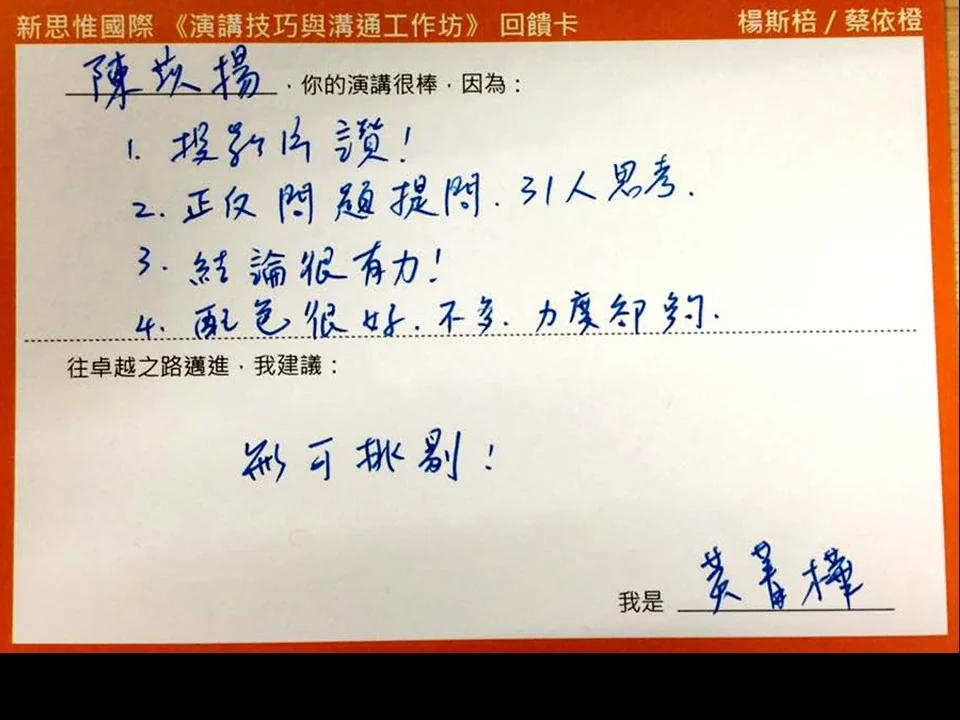 新思惟國際《演講技巧與溝通工作坊》回饋卡 楊斯棓 / 蔡依橙
陳 揚，你的演講很棒，因為：
1. 投影片讚！
2. 正反問題提問. 引人思考.
3. 結論很有力！
4. 配色很好. 不多. 力度卻夠.
往卓越之路邁進，我建議：
無可挑剔！
我是 黃菁樺